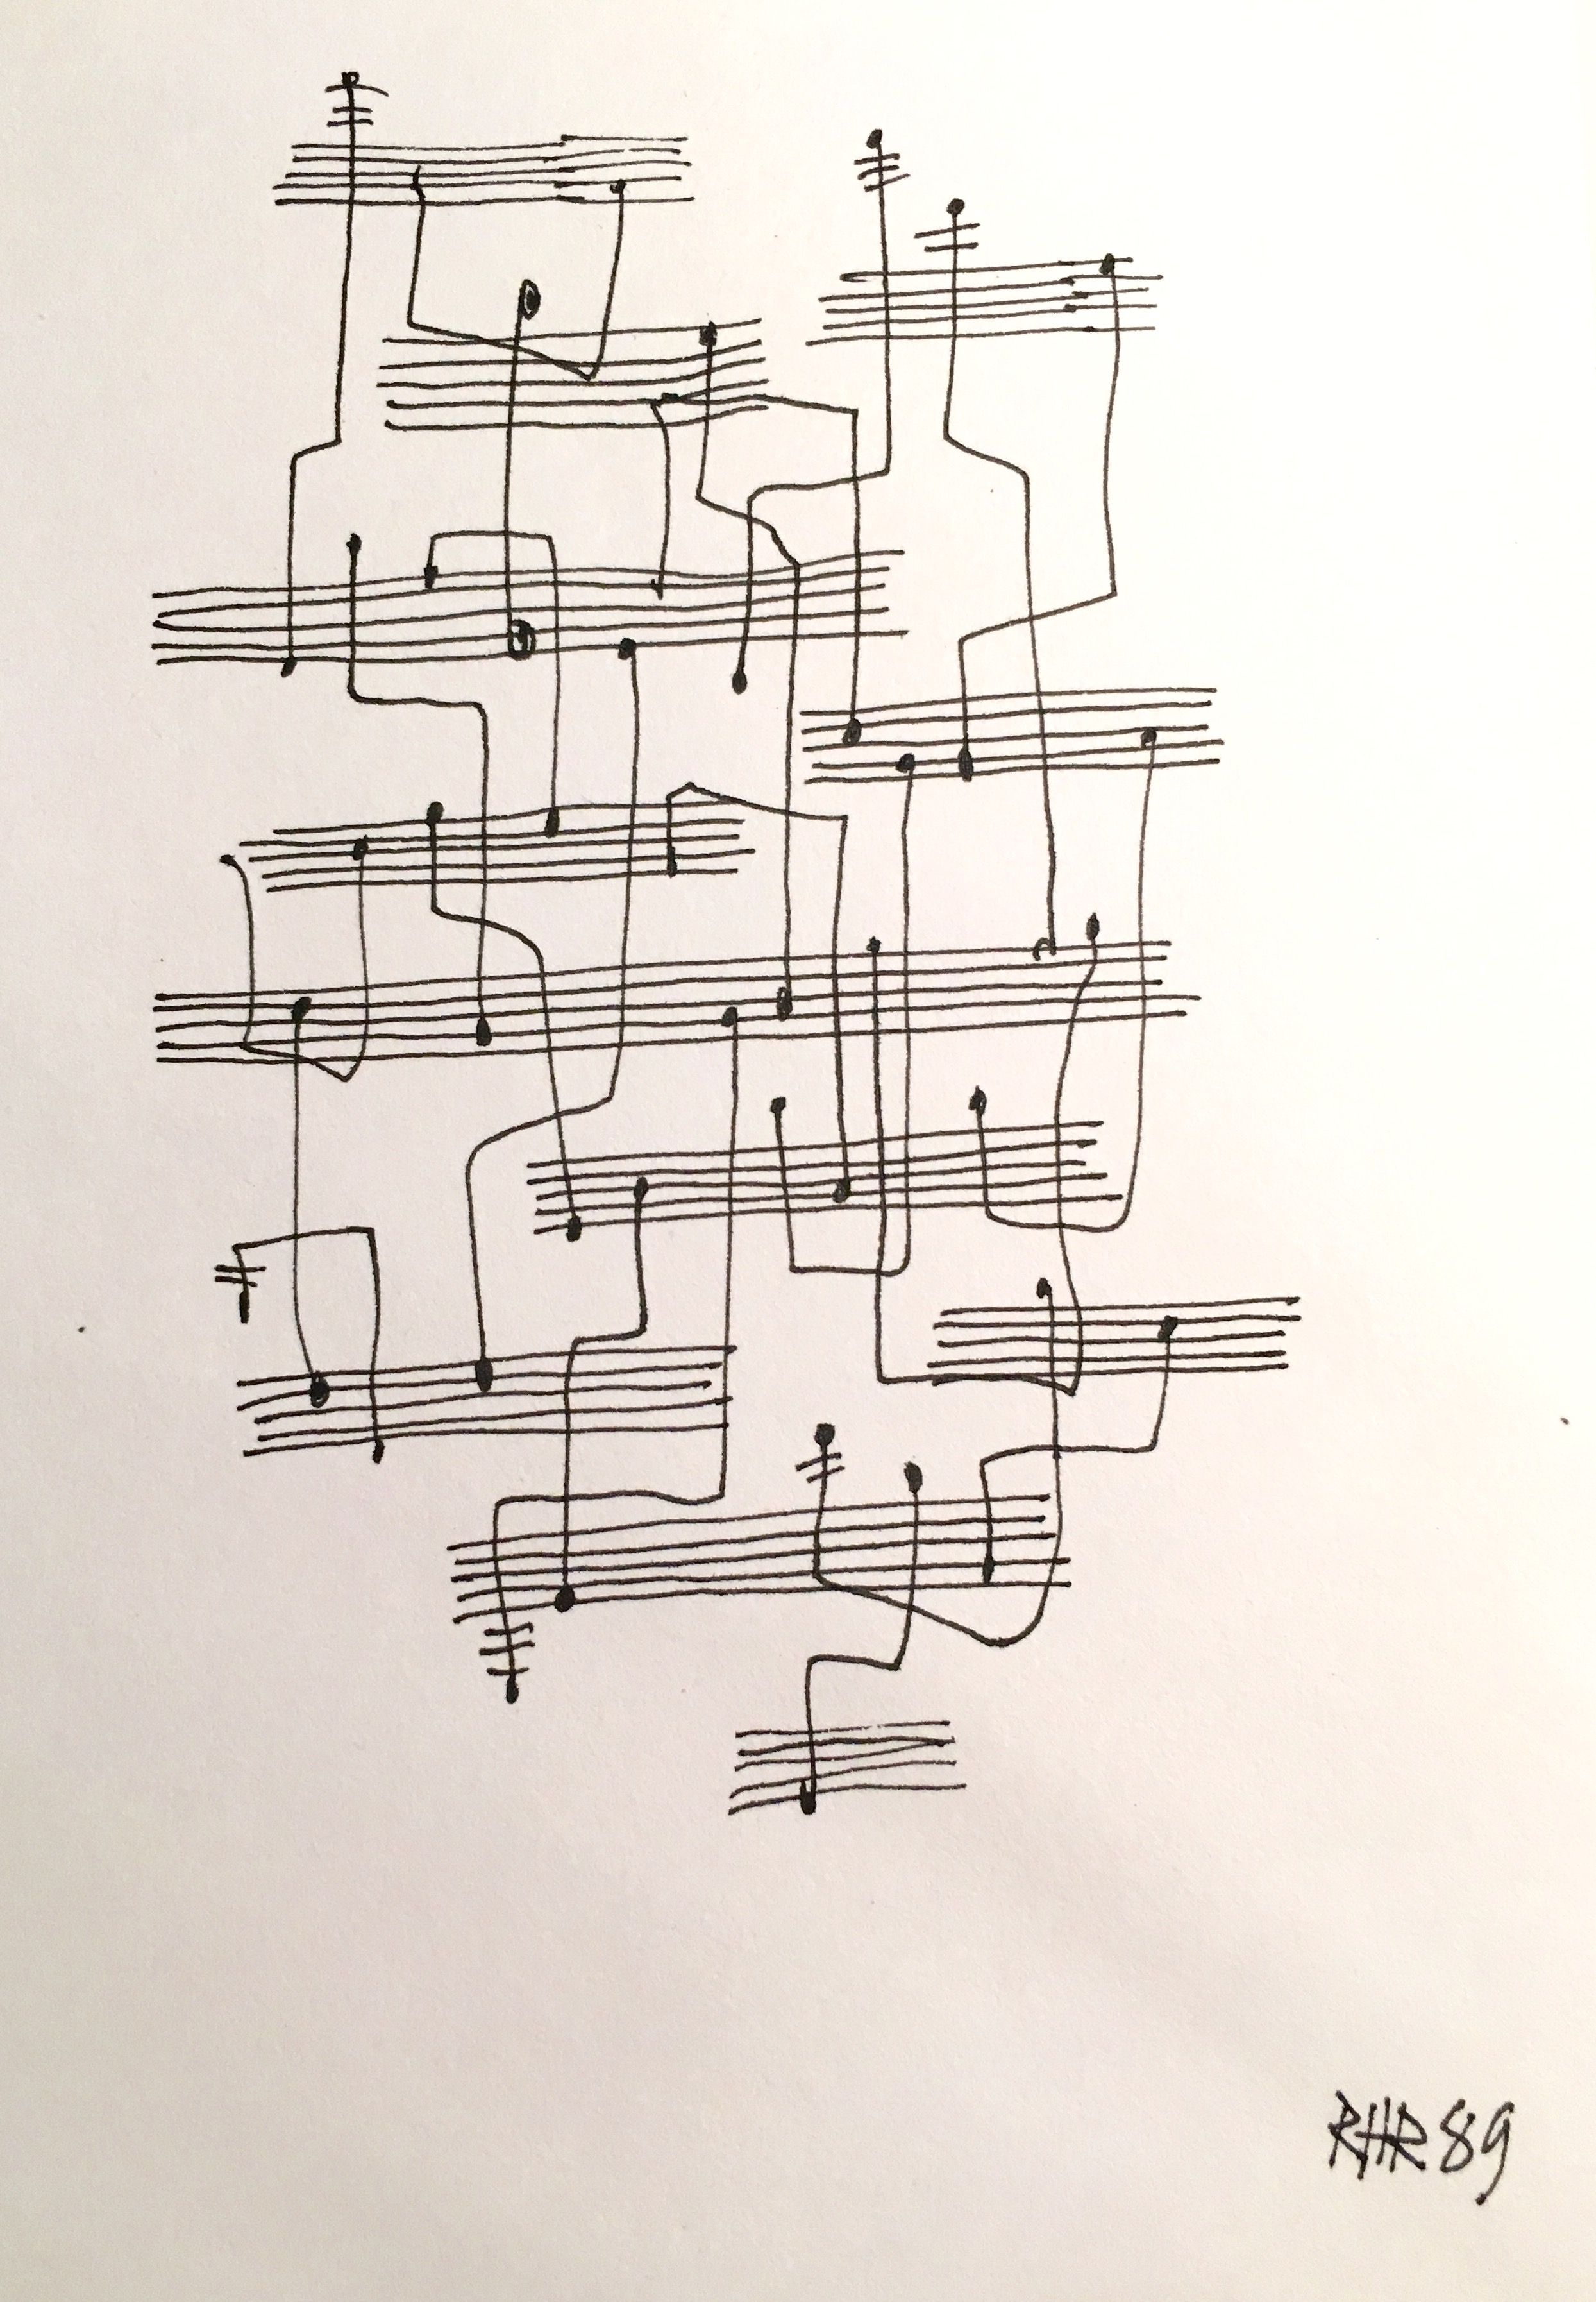 RHR 89